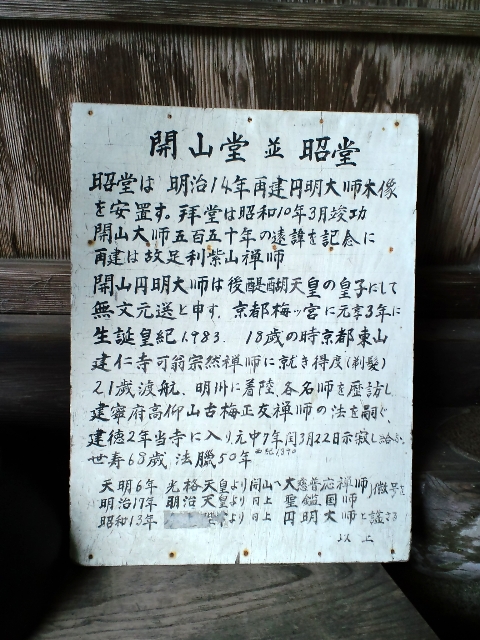 開山堂並昭堂
昭堂は 明治14年再建円明大师木像
を安置す。拝堂は昭和10年3月竣功
開山大师五百五十年の遠諱を記念に
再建は故足利紫山禅师
開山円明大师は後醍醐天皇の皇子にして
無文元送と申す。京都梅ッ宮に元亨3年に
生誕皇紀1983. 18歳の時京都東山
建仁寺可翁宗然禅师に就き得度(剃髪)
21歳渡航、明州に着陸、各名师を歴訪し
建寧府高仰山古梅正友禅师の法を嗣ぐ、
建徳2年当寺に入り元中7年閏3月22日示寂し給ふ。
世寿68歳 法臘50年
天明6年 光格天皇より開山へ大慈普応禅师
明治17年 明治天皇より日上 聖鑑国师
昭和13年 より日上 円明大师と諡さる
徽号を
以上